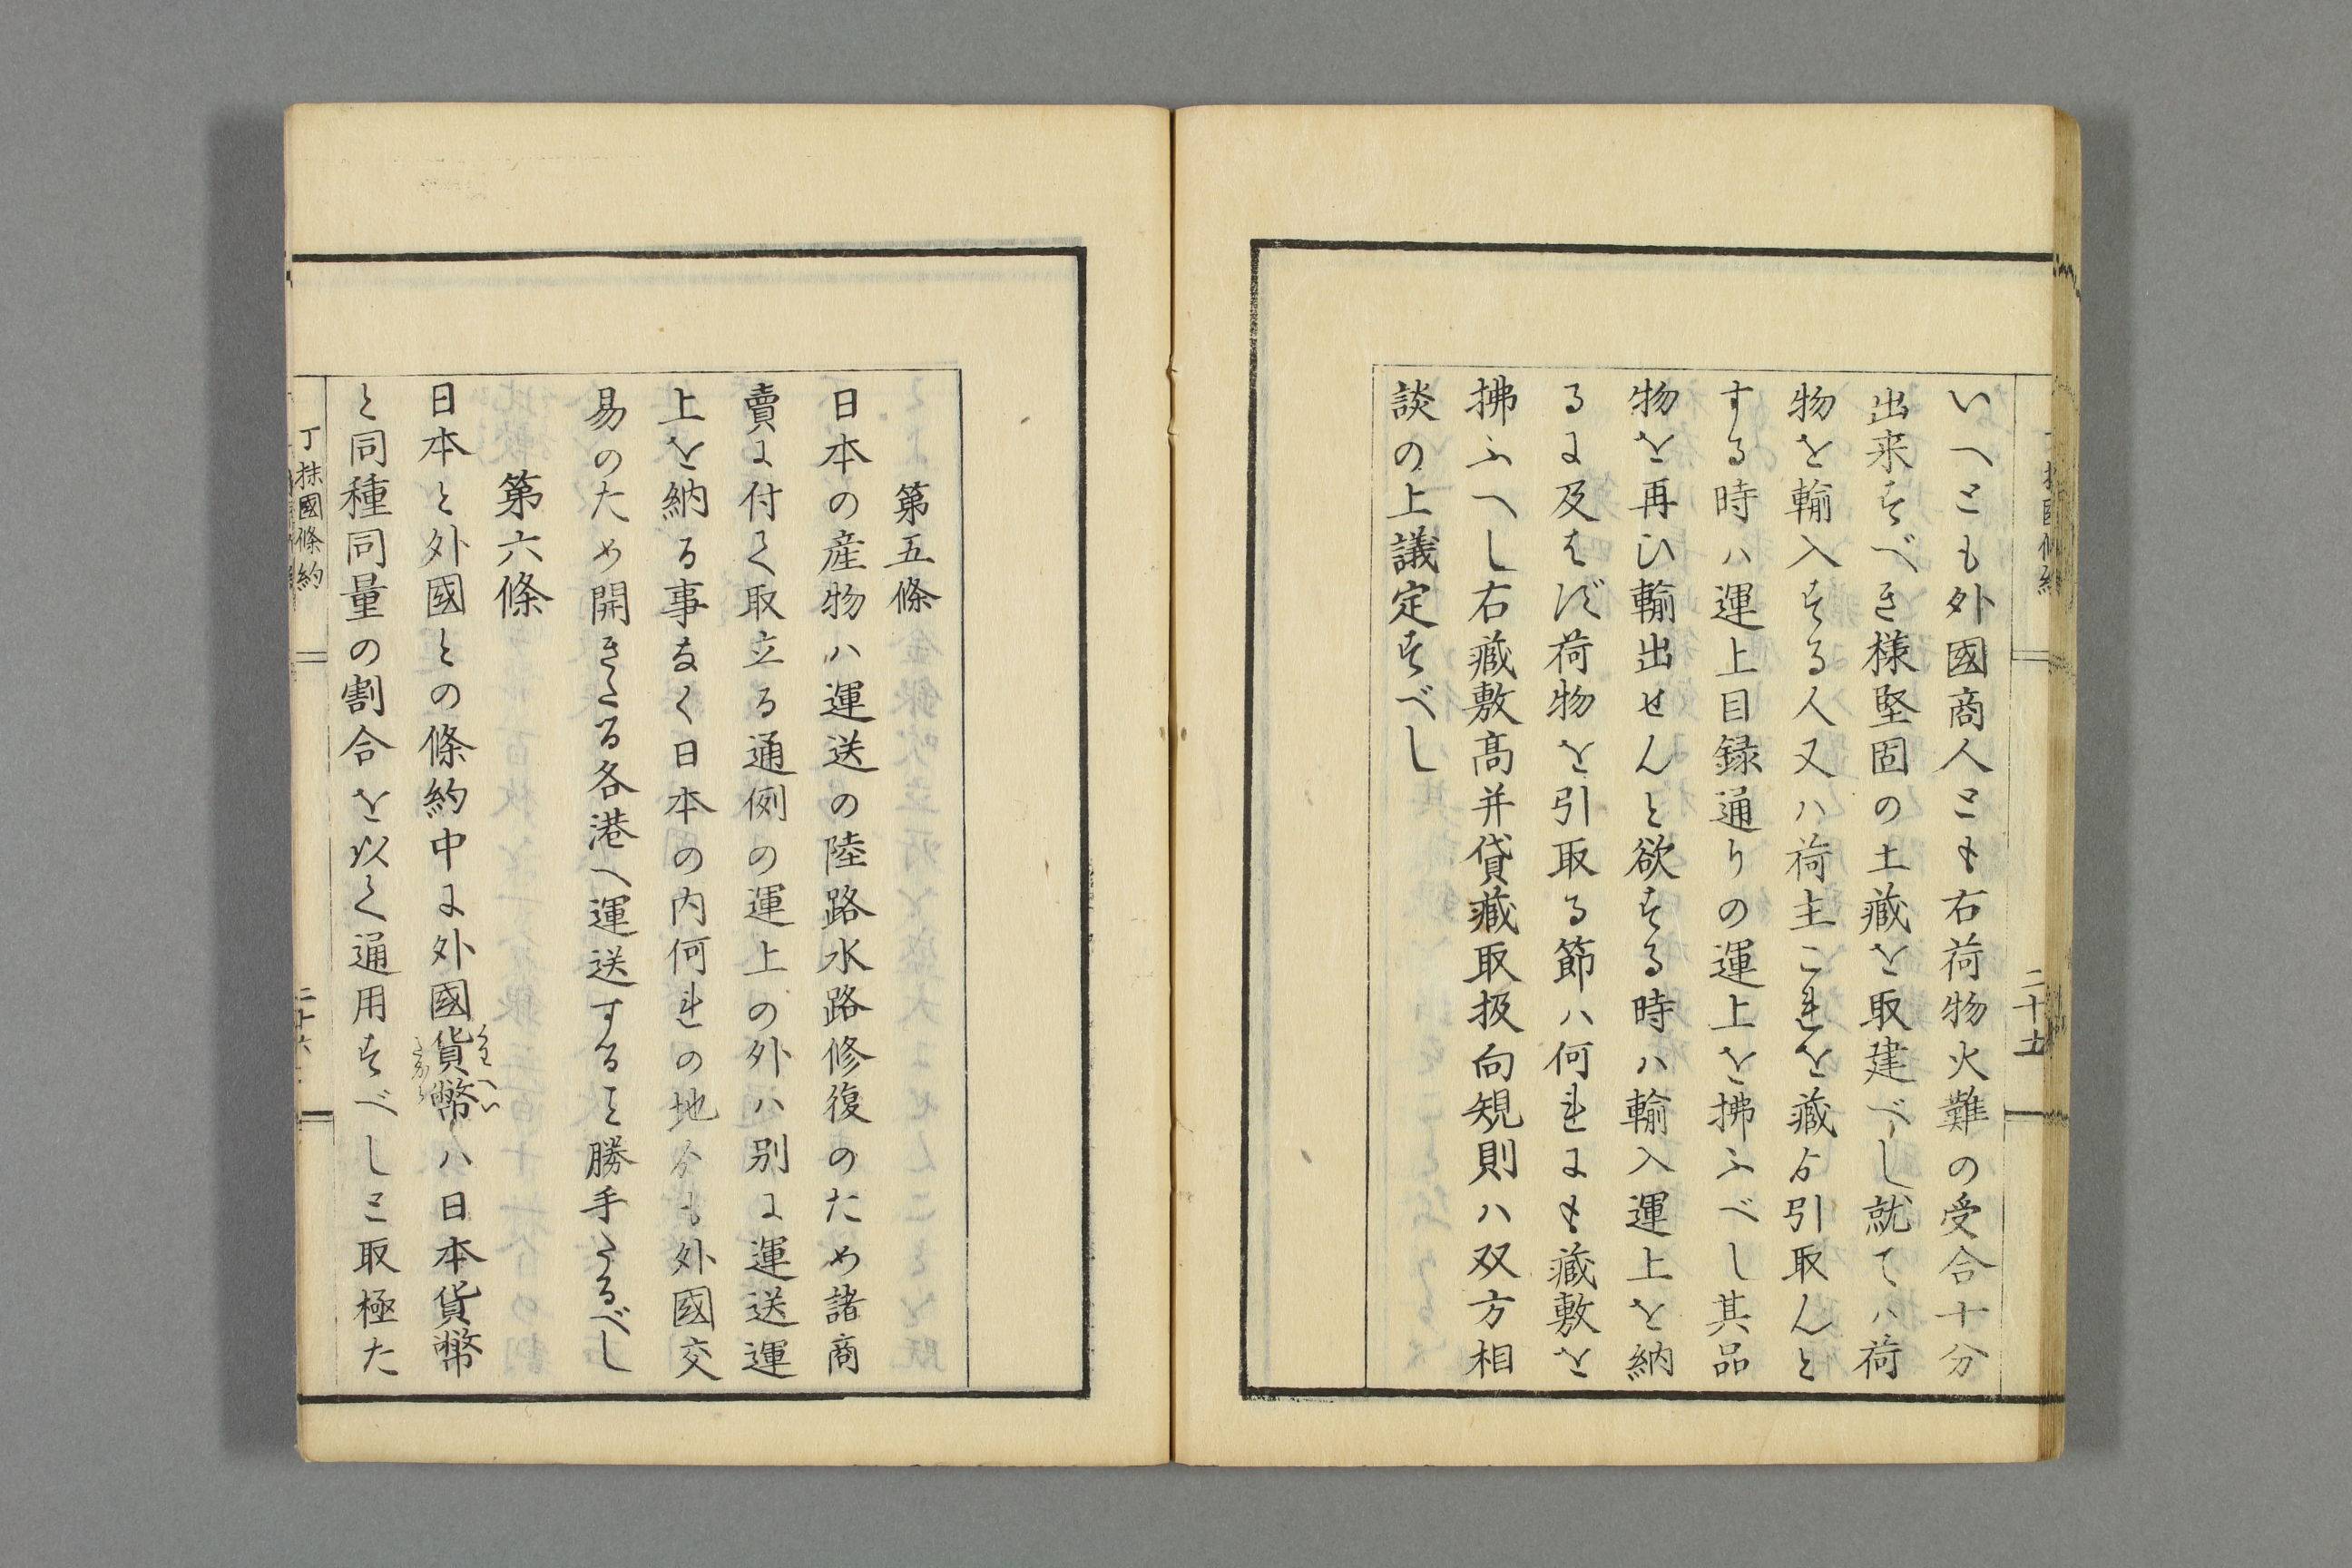 いへとも外國商人とも右荷物火難の受合十分
出来すべき様堅固の土藏を取建べし就てハ荷
物を輸入する人又ハ荷主これを藏ゟ引取んと
する時ハ運上目録通りの運上を拂ふべし其品
物を再ひ輸出せんと欲する時ハ輸入運上を納
るに及ばず荷物を引取る節ハ何れにも藏敷を
拂ふへし右藏敷髙并貸藏取扱向規則ハ双方相
談の上議定すべし
二十五
第五條
日本の産物ハ運送の陸路水路修復のため諸商
賣に付て取立る通例の運上の外ハ別に運送運
上を納る事なく日本の内何れの地ゟも外國交
易のため開きたる各港へ運送するヿ勝手たるべし
第六條
日本と外國との條約中に外國貨幣ハ日本貨幣
くわへい
と同種同量の割合を以て通用すべしと取極た
丁抹國條約
二十六